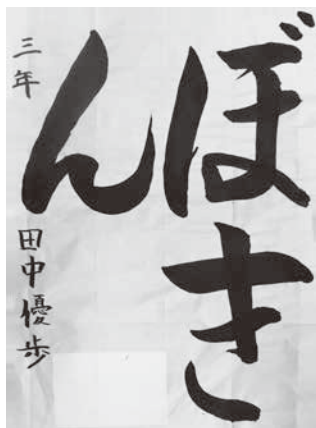 ぼき
ん
三年 田中優歩